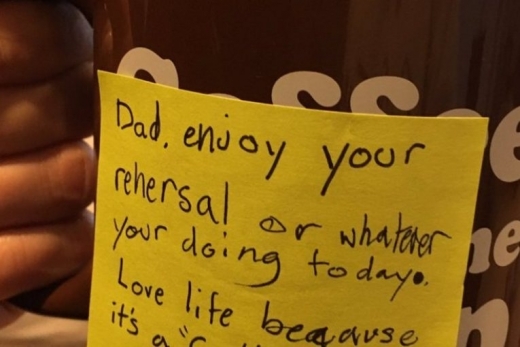 Coffee
Dad, enjoy your
rehersal or whatever
your doing today.
Love life because
it's a